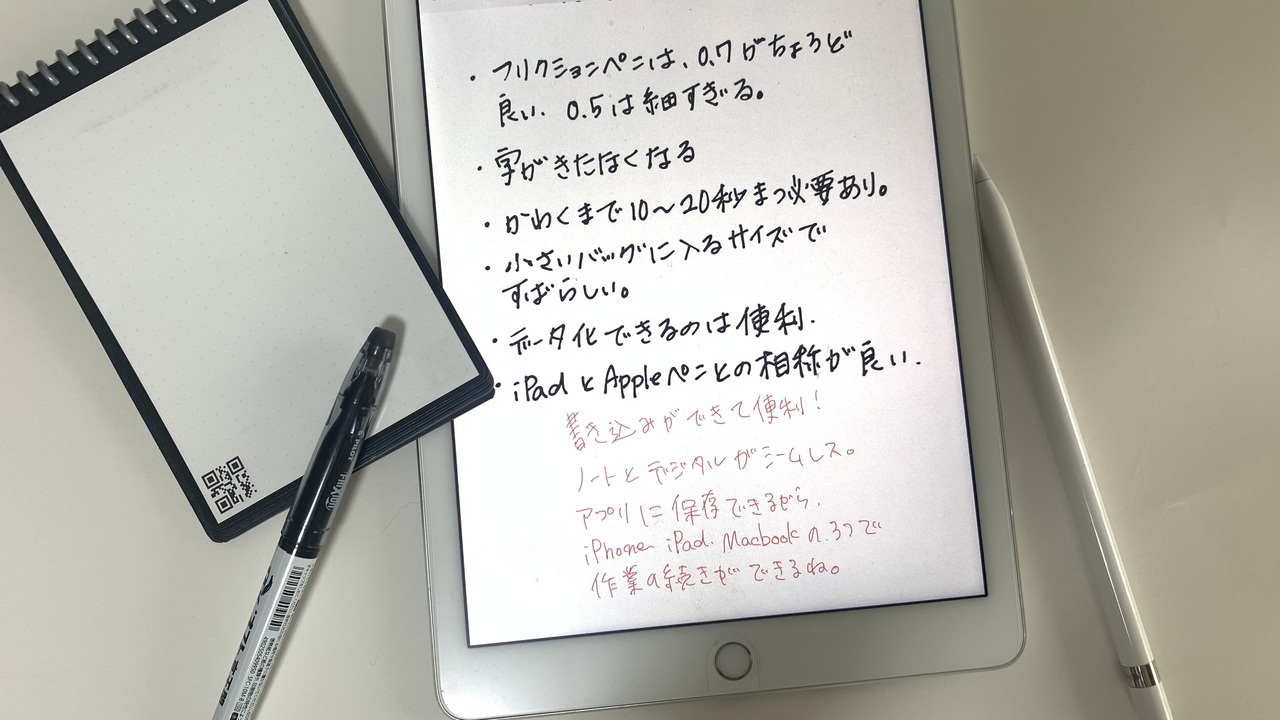 ・フリクションペンは、0.7がちょうど
良い. 0.5は細すぎる。
・字がきたなくなる
・かわくまで10〜20秒まつ必要あり。
・小さいバッグに入るサイズで
すばらしい。
・データ化できるのは便利.
・iPadとAppleペンとの相称が良い.
書き込みができて便利!
ノートとデジタルがシームレス。
アプリに保存できるから.
iPhone iPad. Macbookの3つで
作業の続きができるね。
PILOT FRIXION